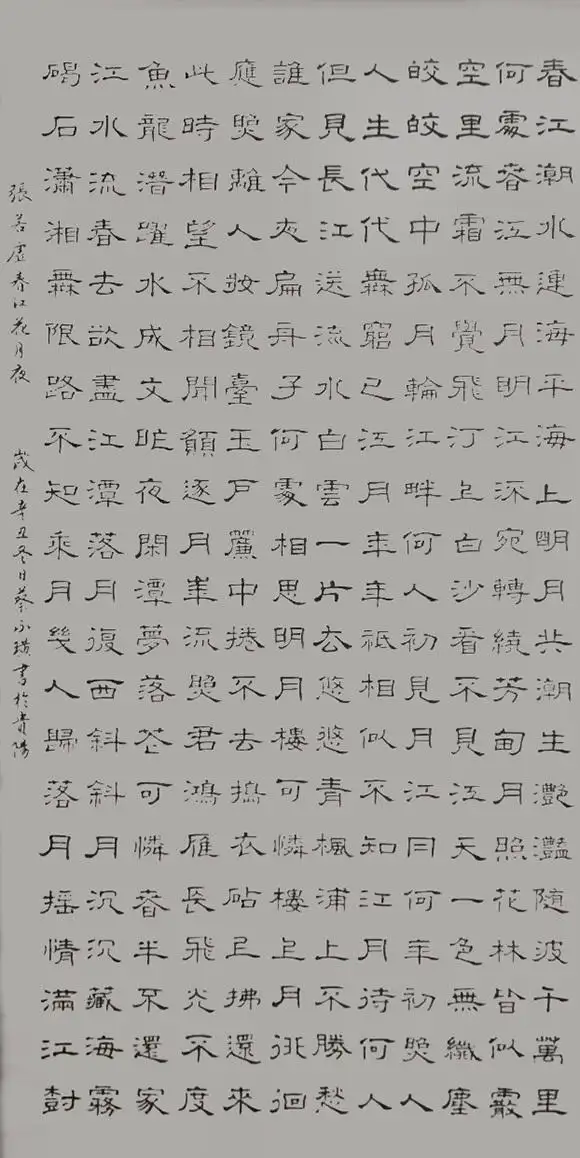 春江潮水連海平海上明月共潮生灧灩隨波千萬里
何處春江無月明江流宛轉繞芳甸月照花林皆似霰
空里流霜不覺飛汀上白沙看不見江天一色無纖塵
皎皎空中孤月輪江畔何人初見月江月何年初照人
人生代代無窮已江月年年祗相似不知江月待何人
但見長江送流水白雲一片去悠悠青楓浦上不勝愁
誰家今夜扁舟子何處相思明月樓可憐樓上月徘徊
應照離人妝鏡臺玉戶簾中捲不去搗衣砧上拂還來
此時相望不相聞願逐月華流照君鴻雁長飛光不度
魚龍潛躍水成文昨夜閑潭夢落花可憐春半不還家
江水流春去欲盡江潭落月復西斜斜月沉沉藏海霧
碣石瀟湘無限路不知乘月幾人歸落月搖情滿江樹
張若虛春江花月夜 歲在辛丑冬日蔡永璜書於貴陽